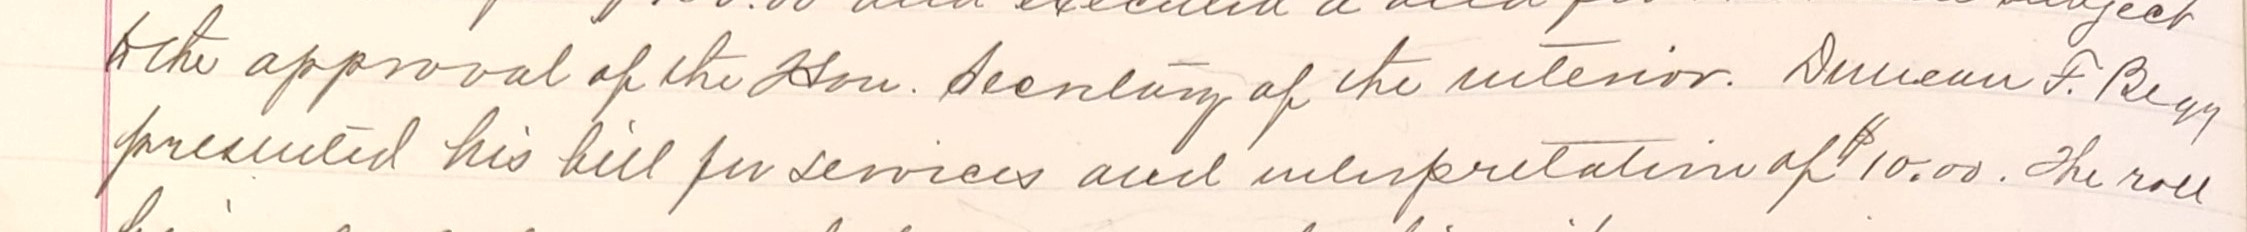 00 and executed a deed subject
to the approval of the Hon. Secretary of the interior. Duncan F. Begg
presented his bill for services and interpretation of $10.00. The roll